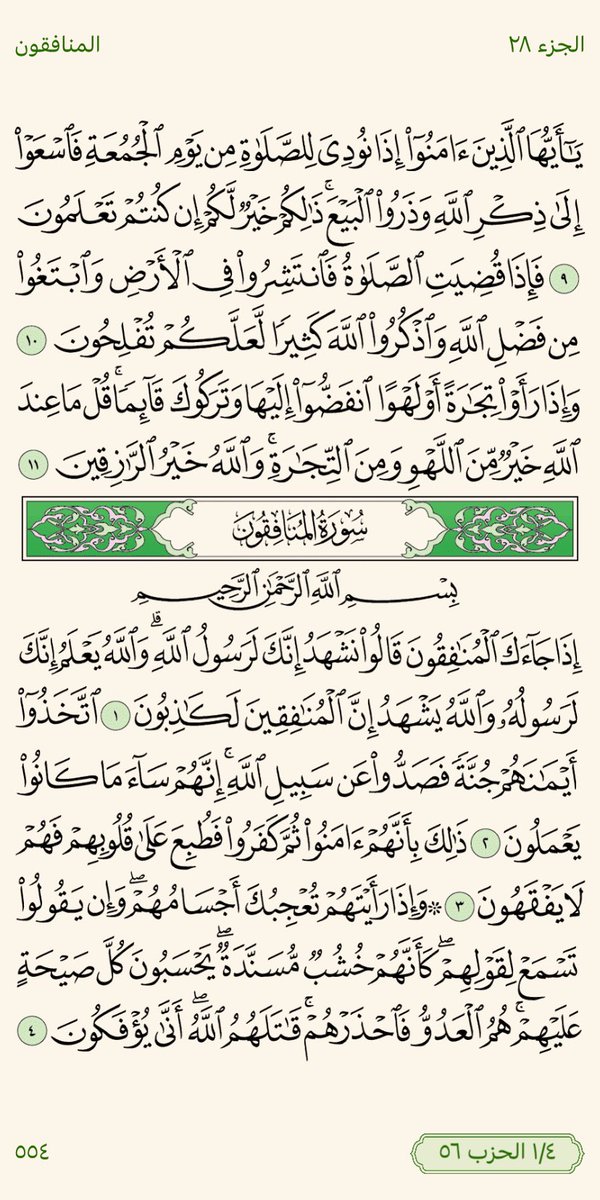 الجزء ٢٨
المنافقون
يَٰٓأَيُّهَا ٱلَّذِينَ ءَامَنُوٓا۟ إِذَا نُودِىَ لِلصَّلَوٰةِ مِن يَوْمِ ٱلْجُمُعَةِ فَٱسْعَوْا۟
إِلَىٰ ذِكْرِ ٱللَّهِ وَذَرُوا۟ ٱلْبَيْعَ ۚ ذَٰلِكُمْ خَيْرٌ لَّكُمْ إِن كُنتُمْ تَعْلَمُونَ
٩ فَإِذَا قُضِيَتِ ٱلصَّلَوٰةُ فَٱنتَشِرُوا۟ فِى ٱلْأَرْضِ وَٱبْتَغُوا۟
مِن فَضْلِ ٱللَّهِ وَٱذْكُرُوا۟ ٱللَّهَ كَثِيرًا لَّعَلَّكُمْ تُفْلِحُونَ ١٠
وَإِذَا رَأَوْا۟ تِجَٰرَةً أَوْ لَهْوًا ٱنفَضُّوٓا۟ إِلَيْهَا وَتَرَكُوكَ قَآئِمًا ۚ قُلْ مَا عِندَ
ٱللَّهِ خَيْرٌ مِّنَ ٱللَّهْوِ وَمِنَ ٱلتِّجَٰرَةِ ۚ وَٱللَّهُ خَيْرُ ٱلرَّٰزِقِينَ ١١
سُورَةُ المُنَافِقُونَ
بِسْمِ ٱللَّهِ ٱلرَّحْمَٰنِ ٱلرَّحِيمِ
إِذَا جَآءَكَ ٱلْمُنَٰفِقُونَ قَالُوا۟ نَشْهَدُ إِنَّكَ لَرَسُولُ ٱللَّهِ ۗ وَٱللَّهُ يَعْلَمُ إِنَّكَ
لَرَسُولُهُۥ وَٱللَّهُ يَشْهَدُ إِنَّ ٱلْمُنَٰفِقِينَ لَكَٰذِبُونَ ١ ٱتَّخَذُوٓا۟
أَيْمَٰنَهُمْ جُنَّةً فَصَدُّوا۟ عَن سَبِيلِ ٱللَّهِ ۚ إِنَّهُمْ سَآءَ مَا كَانُوا۟
يَعْمَلُونَ ٢ ذَٰلِكَ بِأَنَّهُمْ ءَامَنُوا۟ ثُمَّ كَفَرُوا۟ فَطُبِعَ عَلَىٰ قُلُوبِهِمْ فَهُمْ
لَا يَفْقَهُونَ ٣ ۞ وَإِذَا رَأَيْتَهُمْ تُعْجِبُكَ أَجْسَامُهُمْ ۖ وَإِن يَقُولُوا۟
تَسْمَعْ لِقَوْلِهِمْ ۖ كَأَنَّهُمْ خُشُبٌ مُّسَنَّدَةٌ ۖ يَحْسَبُونَ كُلَّ صَيْحَةٍ
عَلَيْهِمْ ۚ هُمُ ٱلْعَدُوُّ فَٱحْذَرْهُمْ ۚ قَٰتَلَهُمُ ٱللَّهُ ۖ أَنَّىٰ يُؤْفَكُونَ ٤
١/٤ الحزب ٥٦
٥٥٤